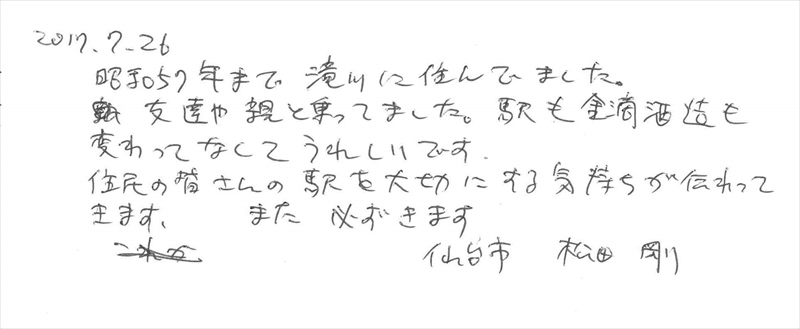 2017.7.26
昭和57年まで 滝川に住んでました。
友達や親と乗ってました。駅も金滴酒造も
変わってなくてうれしいです.
住民の皆さんの駅を大切にする気持ちが伝わって
きます、 また 必ずきます
これか
仙台市 松田 剛